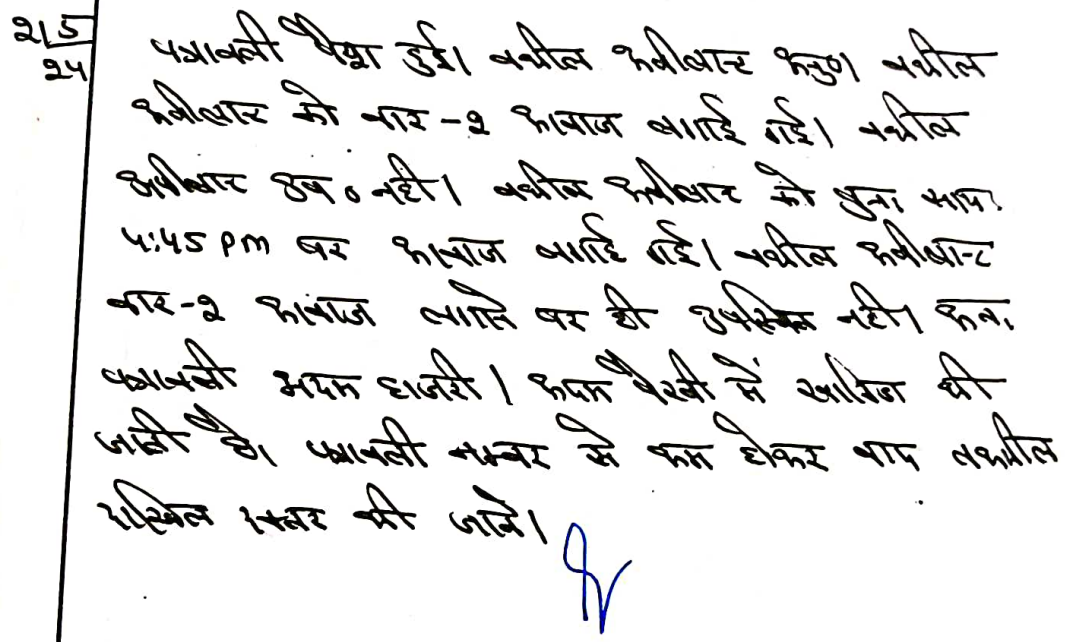 2/5/24
पत्रावली पेश हुई। वकील अपीलान्ट अनु०। वकील
अपीलान्ट को बार-2 आवाज लगाई गई। वकील
अपीलान्ट उप० नही। वकील अपीलान्ट को पुनः सायं
4:45 pm पर आवाज लगाई गई। वकील अपीलान्ट
बार-2 आवाज लगाने पर भी उपस्थित नही। अतः
पत्रावली अदम हाजरी। अदम पैरवी में खारिज की
जाती है। पत्रावली नम्बर से कम होकर बाद तकमील
दाखिल दफ्तर की जावे।